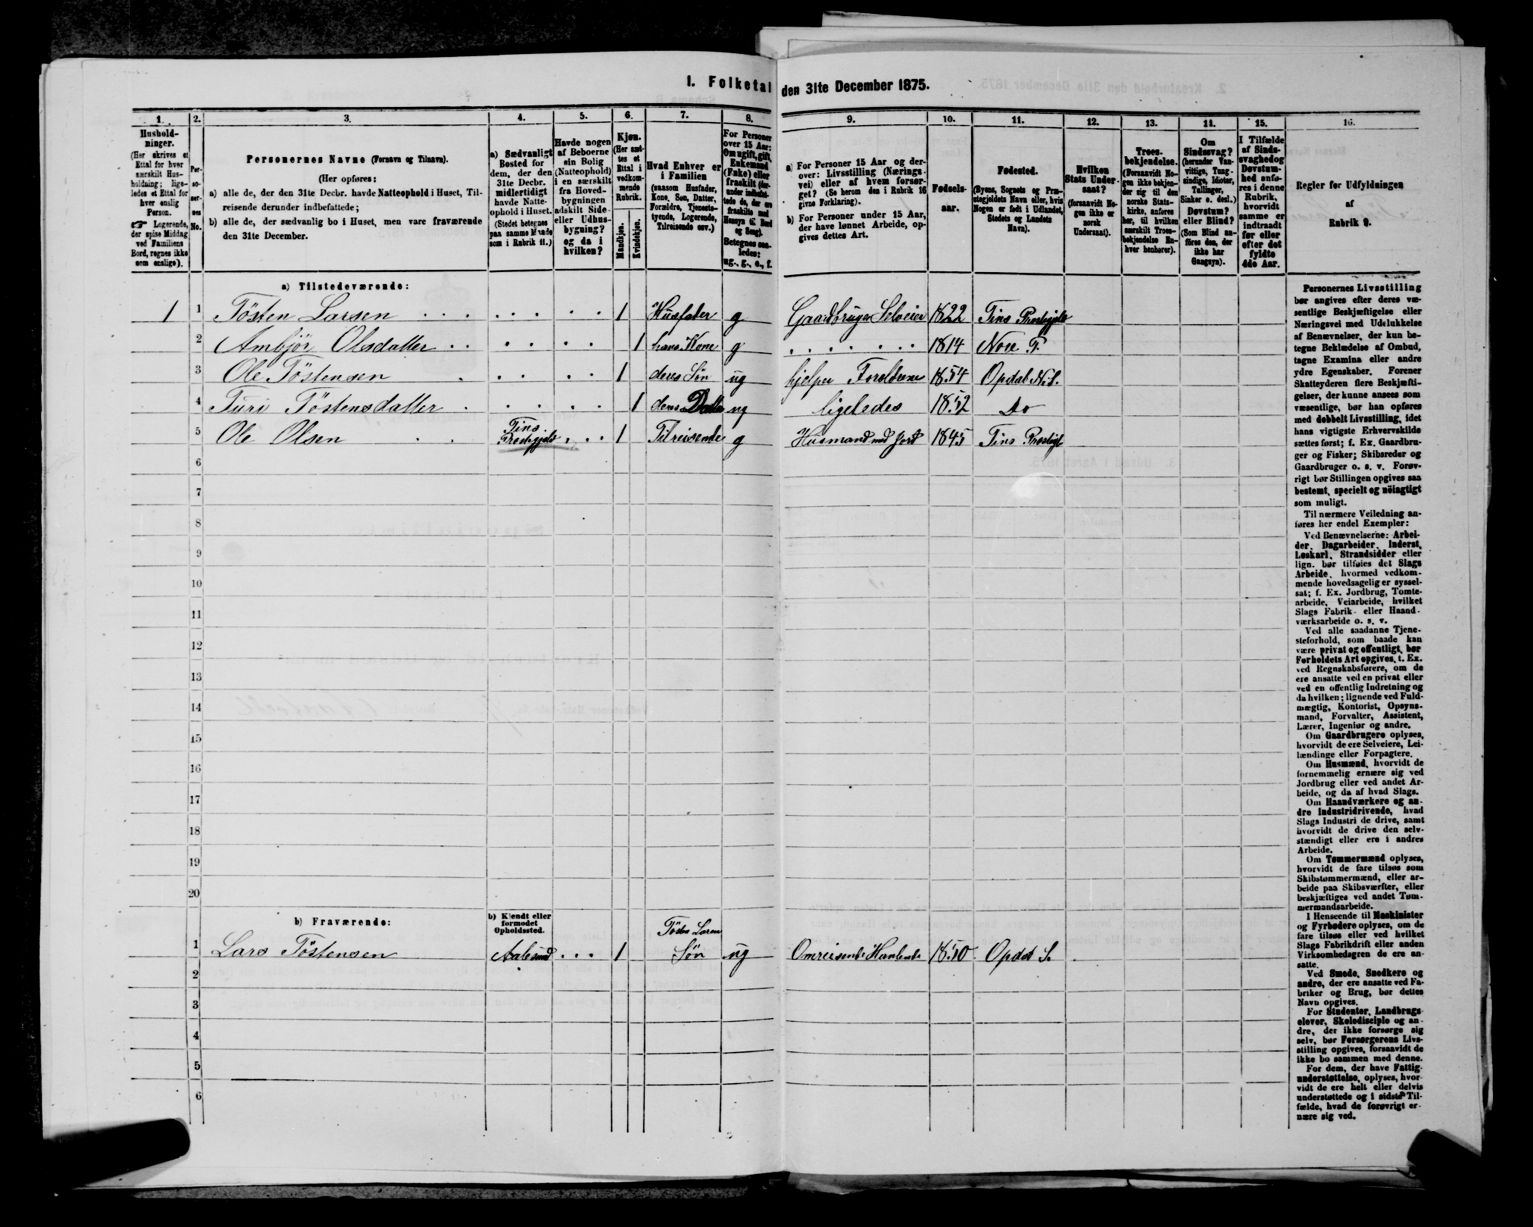 I. Folketal den 31te December 1875.
1. 2. 3. 4. 5. 6. 7. 8. 9. 10. 11. 12. 13. 14. 15. 16.
Hushold-
ninger.
(Her skrives et
Ettal for hver
særskilt Hus-
holdning; lige-
ledes et Ettal for
hver enslig
Person.
☞ Logerende,
der spise Middag
ved Familiens
Bord, regnes ikke
som enslige).
Per-
so-
ner-
nes
No.
Personernes Navne (Fornavn og Tilnavn).
(Her opføres:
a) alle de, der den 31te Decbr. havde Natteophold i Huset, Til-
reisende derunder indbefattede;
b) alle de, der sædvanlig bo i Huset, men vare fraværende
den 31te December.
a) Sædvanligt
Bosted for
dem, der den
31te Decbr.
midlertidigt
havde Natte-
ophold i Huset.
(Stedet betegnes
paa samme Maade
som i Rubrik 11.)
Havde nogen
af Beboerne
sin Bolig
(Natteophold)
i en særskilt
fra Hoved-
bygningen
adskilt Side-
eller Udhus-
bygning?
og da i
hvilken?
Kjøn.
(Her sæt-
tes et
Ettal i
vedkom-
mende
Rubrik.
Mandkjøn.
Kvindekjøn.
Hvad Enhver er
i Familien
(saasom Husfader,
Kone, Søn, Datter,
Forældre, Tjeneste-
tyende, Logerende,
Tilreisende osv.)
For Personer
over 15 Aar:
Om ugift, gift,
Enkemand
(Enke) eller
fraskilt
Betegnes saa-
ledes:
ug., g., e., f.
a) For Personer 15 Aar og der-
over: Livsstilling (Nærings-
vei) eller af hvem forsør-
get? (Se herom den i Rubrik 16
givne Forklaring).
b) For Personer under 15 Aar,
der have lønnet Arbeide, op-
gives dettes Art.
Fødsels-
aar.
Fødested.
(Byens, Sognets og Præ-
stegjeldets Navn eller, hvis
Nogen er født i Udlandet,
Stedets og Landets
Navn).
Hvilken
Stats Under-
saat?
(forsaavidt No-
gen ikke er
norsk
Undersaat).
Troes-
bekjendelse.
(Forsaavidt No-
gen ikke bekjen-
der sig til den
norske Stats-
kirke, anføres
her, til hvilken
særskilt Troes-
bekjendelse En-
hver henhører).
Om
Sindssvag?
(herunder Van-
vittige, Tung-
sindige, Idioter,
Tullinger,
Sinker o. desl.)
Døvstum?
eller Blind?
(Som Blind an-
føres den, der
ikke har
Gangsyn).
I Tilfælde
af Sinds-
svaghed og
Døvstum-
hed anfø-
res i denne
Rubrik,
hvorvidt
samme er
indtraadt
før eller
efter det
fyldte
4de Aar.
Regler for Udfyldningen
af
Rubrik 9.
a) Tilstedeværende:
1 1 Tösten Larsen 1 Husfader g Gaardbruger Selveier 1822 Tins Prestgjeld
2 Ambjör Olsdatter 1 hans Kone g 1814 Nore P.
3 Ole Töstensen 1 deres Søn ug hjelper Forældrene 1854 Opdal N.S.
4 Turi Töstensdatter 1 deres Datter ug ligeledes 1852 Do
5 Ole Olsen Tins Prestgjeld 1 Tilreisende g Husmand med Jord 1845 Tins Prestgj
6
7
8
9
10
11
12
13
14
15
16
17
18
19
20
b) Fraværende:
b) Kjendt eller
formodet
Opholdssted.
1 Lars Töstensen Aalesund 1 Søn ug Omreisende Handlende 1850 Opdal S.
2
3
4
5
6
Personernes Livsstilling
bør angives efter deres væ-
sentlige Beskjæftigelse eller
Næringsvei med Udelukkelse
af Benævnelser, der kun be-
tegne Beklædelse af Ombud,
tegne Examina eller andre
ydre Egenskaber. Forener
Skatteyderen flere Beskjæfti-
gelser, der kunne ansees som
væsentlige, bør han opføres
med dobbelt Livsstilling, idet
hans vigtigste Erhvervskilde
sættes først; f. Ex. Gaardbru-
ger og Fisker; Skibsreder og
Gaardbruger o. s. v. Forøv-
rigt bør Stillingen opgives saa
bestemt, specielt og nöiagtigt
som muligt.
Til nærmere Veiledning an-
føres her endel Exempler:
Ved Benævnelserne: Arbei-
der, Dagarbeider, Inderst,
Løskarl, Strandsidder eller
lign. bør tilføies det Slags
Arbeide, hvormed vedkom-
mende hovedsagelig er syssel-
sat; f. Ex. Jordbrug, Tomte-
arbeide, Veiarbeide, hvilket
Slags Fabrik- eller Haand-
værksarbeide o. s. v.
Ved alle saadanne Tjene-
steforhold, som baade kan
være privat og offentligt, bør
Forholdets Art opgives, t. Ex.
ved Regnskabsførere, om de
ere ansatte ved en privat eller
ved en offentlig Indretning og
da hvilken; lignende ved Fuld-
mægtig, Kontorist, Opsyns-
mand, Forvalter, Assistent,
Lærer, Ingeniør og andre.
Om Gaardbrugere oplyses,
hvorvidt de ere Selveiere, Lei-
lændinge eller Forpagtere.
Om Husmænd, hvorvidt de
fornemmelig ernære sig ved
Jordbrug eller ved andet Ar-
beide, og da af hvad Slags.
Om Haandværkere og an-
dre Industridrivende, hvad
Slags Industri de drive, samt
hvorvidt de drive den selv-
stændigt eller ere i andres
Arbeide.
Om Tømmermænd oplyses,
hvorvidt de fare tilsøs som
Skibstømmermænd, eller ar-
beide paa Skibsværfter, eller
beskjæftiges ved andet Tøm-
mermandsarbeide.
I Henseende til Maskinister
og Fyrbødere oplyses, om de
fare tilsøs eller ved hvilket
Slags Fabrikdrift eller anden
Virksomhedsgren de ere an-
satte.
Ved Smede, Snedkere og
andre, der ere ansatte ved Fa-
briker og Brug, bør dettes
Navn opgives.
For Studenter, Landbrugs-
elever, Skoledisciple og an-
dre, der ikke forsørge sig
selv, bør Forsørgerens Livs-
stilling opgives, forsaavidt de
ikke bo sammen med denne.
For dem, der have Fattig-
understøttelse, oplyses, hvor-
vidt de ere helt eller delvis
understøttede og i sidste Til-
fælde, hvad de forøvrigt er-
nære sig ved.